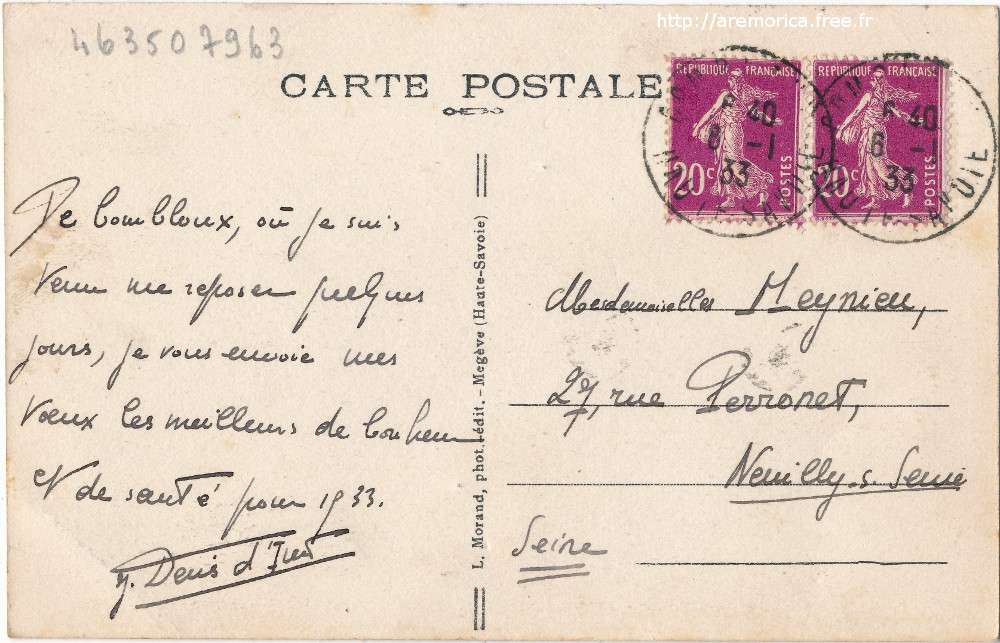 http://aremorica.free.fr
463507963
CARTE POSTALE
REPUBLIQUE FRANÇAISE
20c
POSTES
REPUBLIQUE FRANÇAISE
20c
POSTES
6 40
8 -1
33
HAUTE-SAVOIE
6 40
8 -1
33
HAUTE-SAVOIE
De Combloux, où je suis
venu me reposer quelques
jours, je vous envoie mes
vœux les meilleurs de bonheur
et de santé pour 1933.
Denis
L. Morand, phot.-édit. - Megève (Haute-Savoie)
Mesdemoiselles Meynieu,
27, rue Perronet,
Neuilly-s-Seine
Seine